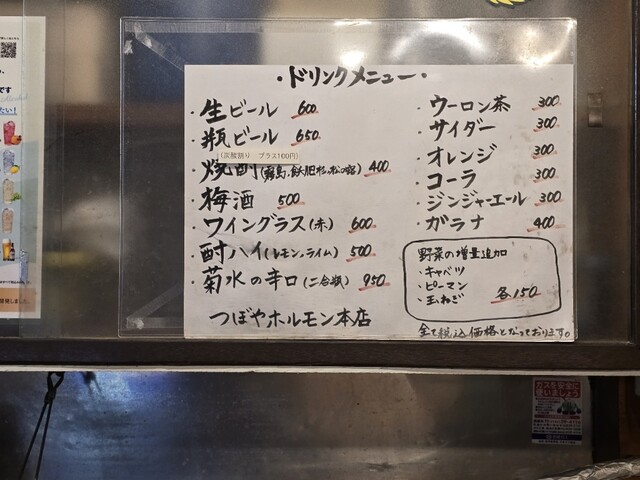 ・ドリンクメニュー・
・生ビール 600
・瓶ビール 650
(炭酸割り プラス100円)
・焼酎(霧島,飫肥杉,松の露) 400
・梅酒 500
・ワイングラス(赤) 600
・酎ハイ(レモン,ライム) 500
・菊水の辛口(二合瓶) 950
つぼやホルモン本店
・ウーロン茶 300
・サイダー 300
・オレンジ 300
・コーラ 300
・ジンジャーエール 300
・ガラナ 400
野菜の増量追加
・キャベツ
・ピーマン
・玉ねぎ 各150
全て税込価格となっております。
ガスを安全に
使いましょう